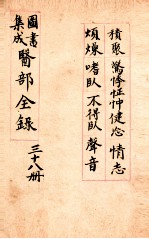 積聚 驚悸怔忡健忘 情志
煩燥 嗜臥 不得臥 聲音
圖書
集成
醫部全錄
三十八册